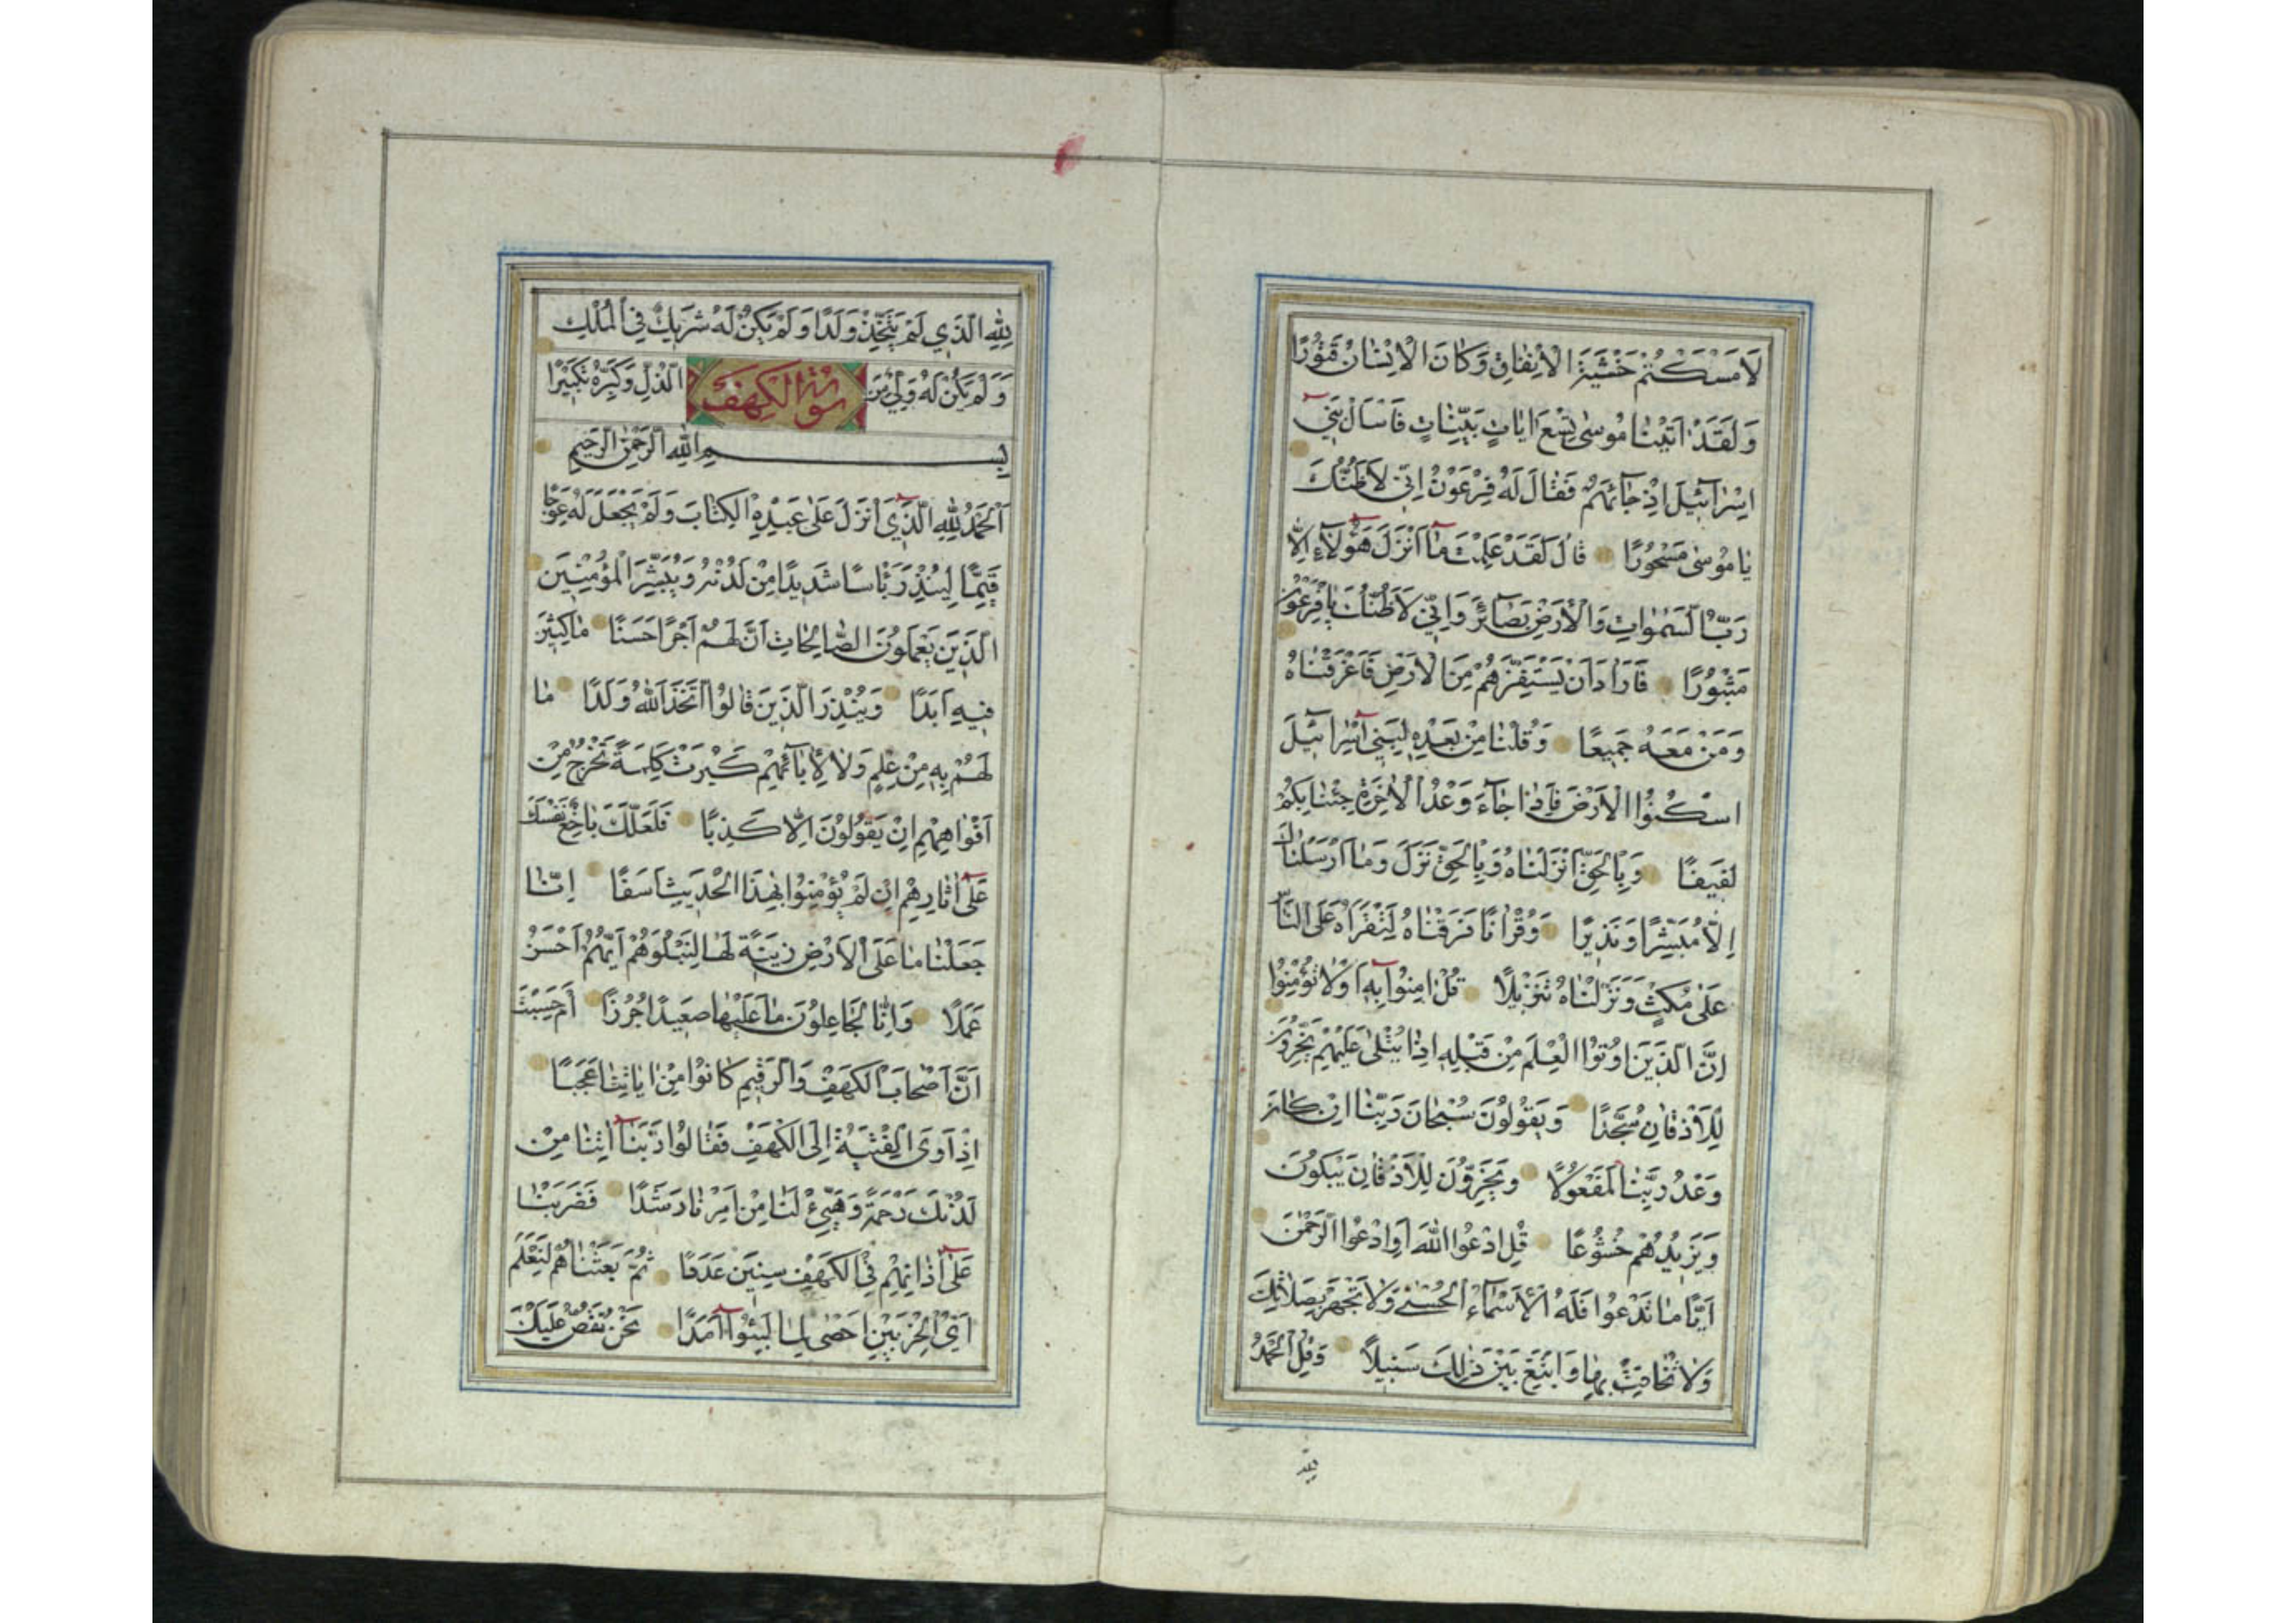 لَاَمْسَكْتُمْ خَشْيَةَ الْاِنْفٰاقِ وَكٰانَ الْاِنْسٰانُ قَتُورًا
وَلَقَدْ اٰتَيْنٰا مُوسٰى تِسْعَ اٰيٰاتٍ بَيِّنٰاتٍ فَاسْاَلْ بَنِي
اِسْرٰآئِيلَ اِذْ جٰآئَهُمْ فَقٰالَ لَهُ فِرْعَوْنُ اِنِّي لَاَظُنُّكَ
يٰا مُوسٰى مَسْحُورًا قٰالَ لَقَدْ عَلِمْتَ مٰا اَنْزَلَ هٰؤُلَآءِ اِلّٰا
رَبُّ السَّمٰوٰاتِ وَالْاَرْضِ بَصٰآئِرَ وَاِنِّي لَاَظُنُّكَ يٰافِرْعَوْنُ
مَثْبُورًا فَاَرٰادَ اَنْ يَسْتَفِزَّهُمْ مِنَ الْاَرْضِ فَاَغْرَقْنٰاهُ
وَمَنْ مَعَهُ جَمِيعًا وَقُلْنٰا مِنْ بَعْدِهِ لِبَنِي اِسْرٰآئِيلَ
اسْكُنُوا الْاَرْضَ فَاِذٰا جٰآءَ وَعْدُ الْاٰخِرَةِ جِئْنٰا بِكُمْ
لَفِيفًا وَبِالْحَقِّ اَنْزَلْنٰاهُ وَبِالْحَقِّ نَزَلَ وَمٰا اَرْسَلْنٰاكَ
اِلّٰا مُبَشِّرًا وَنَذِيرًا وَقُرْاٰنًا فَرَقْنٰاهُ لِتَقْرَاَهُ عَلَى النّٰاسِ
عَلٰى مُكْثٍ وَنَزَّلْنٰاهُ تَنْزِيلًا قُلْ اٰمِنُوا بِهِ اَوْلٰا تُؤْمِنُوا
اِنَّ الَّذِينَ اُوتُوا الْعِلْمَ مِنْ قَبْلِهِ اِذٰا يُتْلٰى عَلَيْهِمْ يَخِرُّونَ
لِلْاَذْقٰانِ سُجَّدًا وَيَقُولُونَ سُبْحٰانَ رَبِّنٰا اِنْ كٰانَ
وَعْدُ رَبِّنٰا لَمَفْعُولًا وَيَخِرُّونَ لِلْاَذْقٰانِ يَبْكُونَ
وَيَزِيدُهُمْ خُشُوعًا قُلِ ادْعُوا اللّٰهَ اَوِ ادْعُوا الرَّحْمٰنَ
اَيًّا مٰا تَدْعُوا فَلَهُ الْاَسْمٰآءُ الْحُسْنٰى وَلٰا تَجْهَرْ بِصَلٰاتِكَ
وَلٰا تُخٰافِتْ بِهٰا وَابْتَغِ بَيْنَ ذٰلِكَ سَبِيلًا وَقُلِ الْحَمْدُ
لِلّٰهِ الَّذِي لَمْ يَتَّخِذْ وَلَدًا وَلَمْ يَكُنْ لَهُ شَرِيكٌ فِي الْمُلْكِ
وَلَمْ يَكُنْ لَهُ وَلِيٌّ مِنَ سورة الكهف الذُّلِّ وَكَبِّرْهُ تَكْبِيرًا
بِسْمِ اللّٰهِ الرَّحْمٰنِ الرَّحِيمِ
اَلْحَمْدُ لِلّٰهِ الَّذِي اَنْزَلَ عَلٰى عَبْدِهِ الْكِتٰابَ وَلَمْ يَجْعَلْ لَهُ عِوَجًا
قَيِّمًا لِيُنْذِرَ بَاْسًا شَدِيدًا مِنْ لَدُنْهُ وَيُبَشِّرَ الْمُؤْمِنِينَ
الَّذِينَ يَعْمَلُونَ الصّٰالِحٰاتِ اَنَّ لَهُمْ اَجْرًا حَسَنًا مٰاكِثِينَ
فِيهِ اَبَدًا وَيُنْذِرَ الَّذِينَ قٰالُوا اتَّخَذَ اللّٰهُ وَلَدًا مٰا
لَهُمْ بِهِ مِنْ عِلْمٍ وَلٰا لِاٰبٰآئِهِمْ كَبُرَتْ كَلِمَةً تَخْرُجُ مِنْ
اَفْوٰاهِهِمْ اِنْ يَقُولُونَ اِلّٰا كَذِبًا فَلَعَلَّكَ بٰاخِعٌ نَفْسَكَ
عَلٰى اٰثٰارِهِمْ اِنْ لَمْ يُؤْمِنُوا بِهٰذَا الْحَدِيثِ اَسَفًا اِنّٰا
جَعَلْنٰا مٰا عَلَى الْاَرْضِ زِينَةً لَهٰا لِنَبْلُوَهُمْ اَيُّهُمْ اَحْسَنُ
عَمَلًا وَاِنّٰا لَجٰاعِلُونَ مٰا عَلَيْهٰا صَعِيدًا جُرُزًا اَمْ حَسِبْتَ
اَنَّ اَصْحٰابَ الْكَهْفِ وَالرَّقِيمِ كٰانُوا مِنْ اٰيٰاتِنٰا عَجَبًا
اِذْ اَوَى الْفِتْيَةُ اِلَى الْكَهْفِ فَقٰالُوا رَبَّنٰا اٰتِنٰا مِنْ
لَدُنْكَ رَحْمَةً وَهَيِّئْ لَنٰا مِنْ اَمْرِنٰا رَشَدًا فَضَرَبْنٰا
عَلٰى اٰذٰانِهِمْ فِي الْكَهْفِ سِنِينَ عَدَدًا ثُمَّ بَعَثْنٰاهُمْ لِنَعْلَمَ
اَيُّ الْحِزْبَيْنِ اَحْصٰى لِمٰا لَبِثُوا اَمَدًا نَحْنُ نَقُصُّ عَلَيْكَ